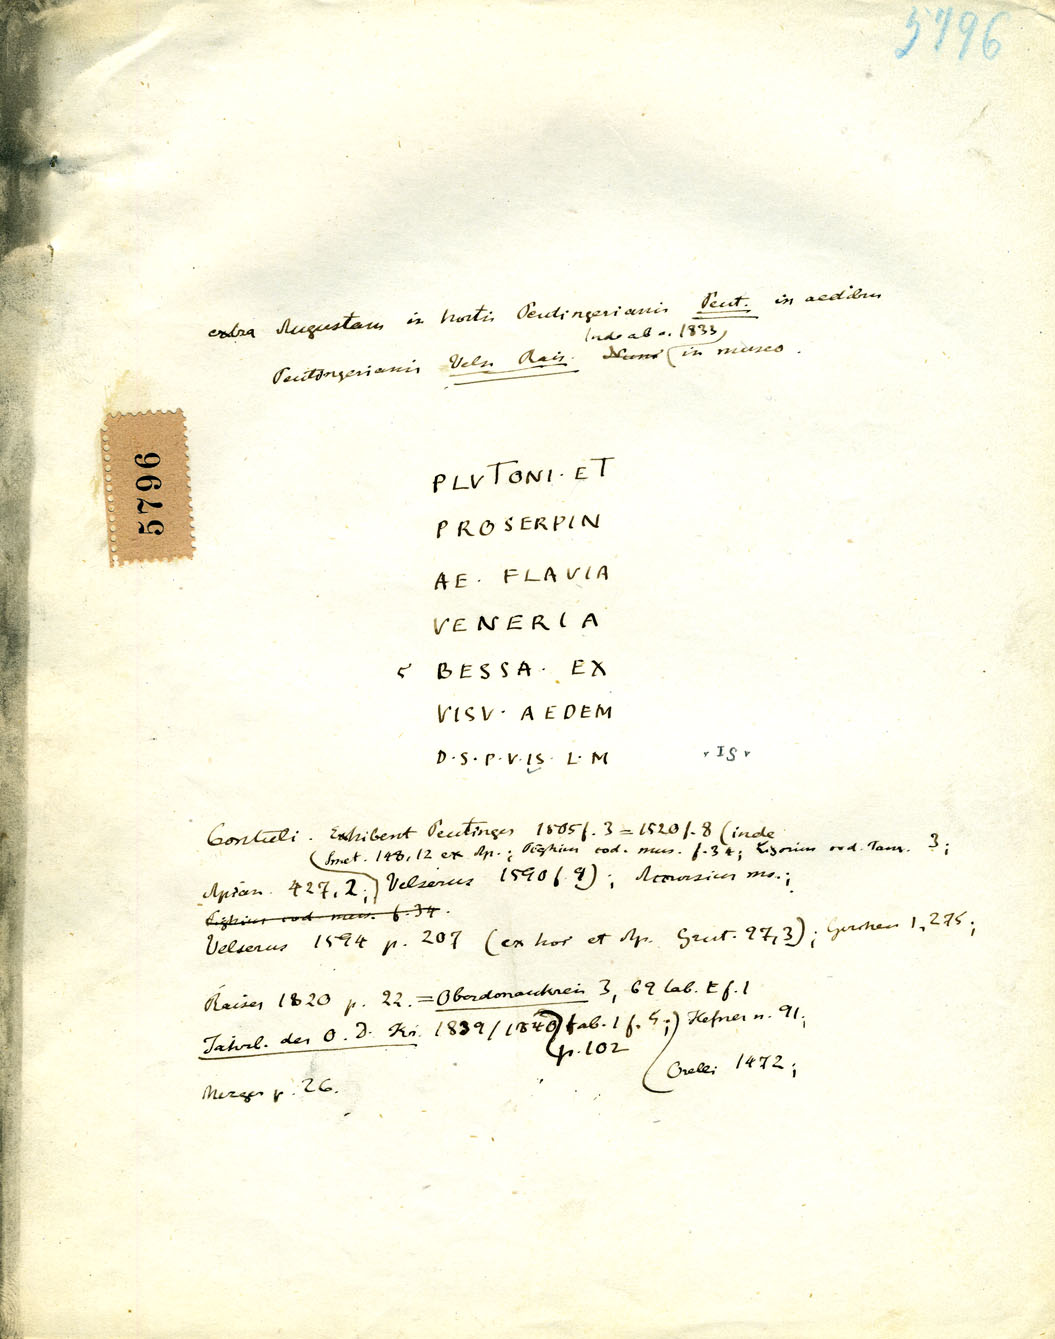 5796
extra Augustam in hortis Peutingerianis Peut. in aedibus
Inde ab a. 1833
Peutingerianis Vels. Rais. Nunc in museo.
5796
PLVTONI · ET
PROSERPIN
AE · FLAVIA
VENERIA
5 BESSA · EX
VISV · AEDEM
D·S·P·V·IS·L·M
·IS·
Contuli. Exhibent Peutinger 1505 f. 3 = 1520 f. 8 (inde
(Smet. 148, 12 ex Ap.; Pighius cod. mus. f. 34; Ligorius cod. Taur. 3;
Apian. 427, 2;) Velserus 1590 f. 9); Accursius ms.;
Pighius cod. mus. f. 34.
Velserus 1594 p. 207 (ex hoc et Ap. Grut. 97, 3); 1, 275;
Raiser 1820 p. 22. = Oberdonaukreis 3, 69 tab. E f. 1
Jahrb. des O. D. Kr. 1839/1840 tab. 1 f. 5;) Hefner n. 91;
p. 102
Orelli 1472;
Mezger p. 26.